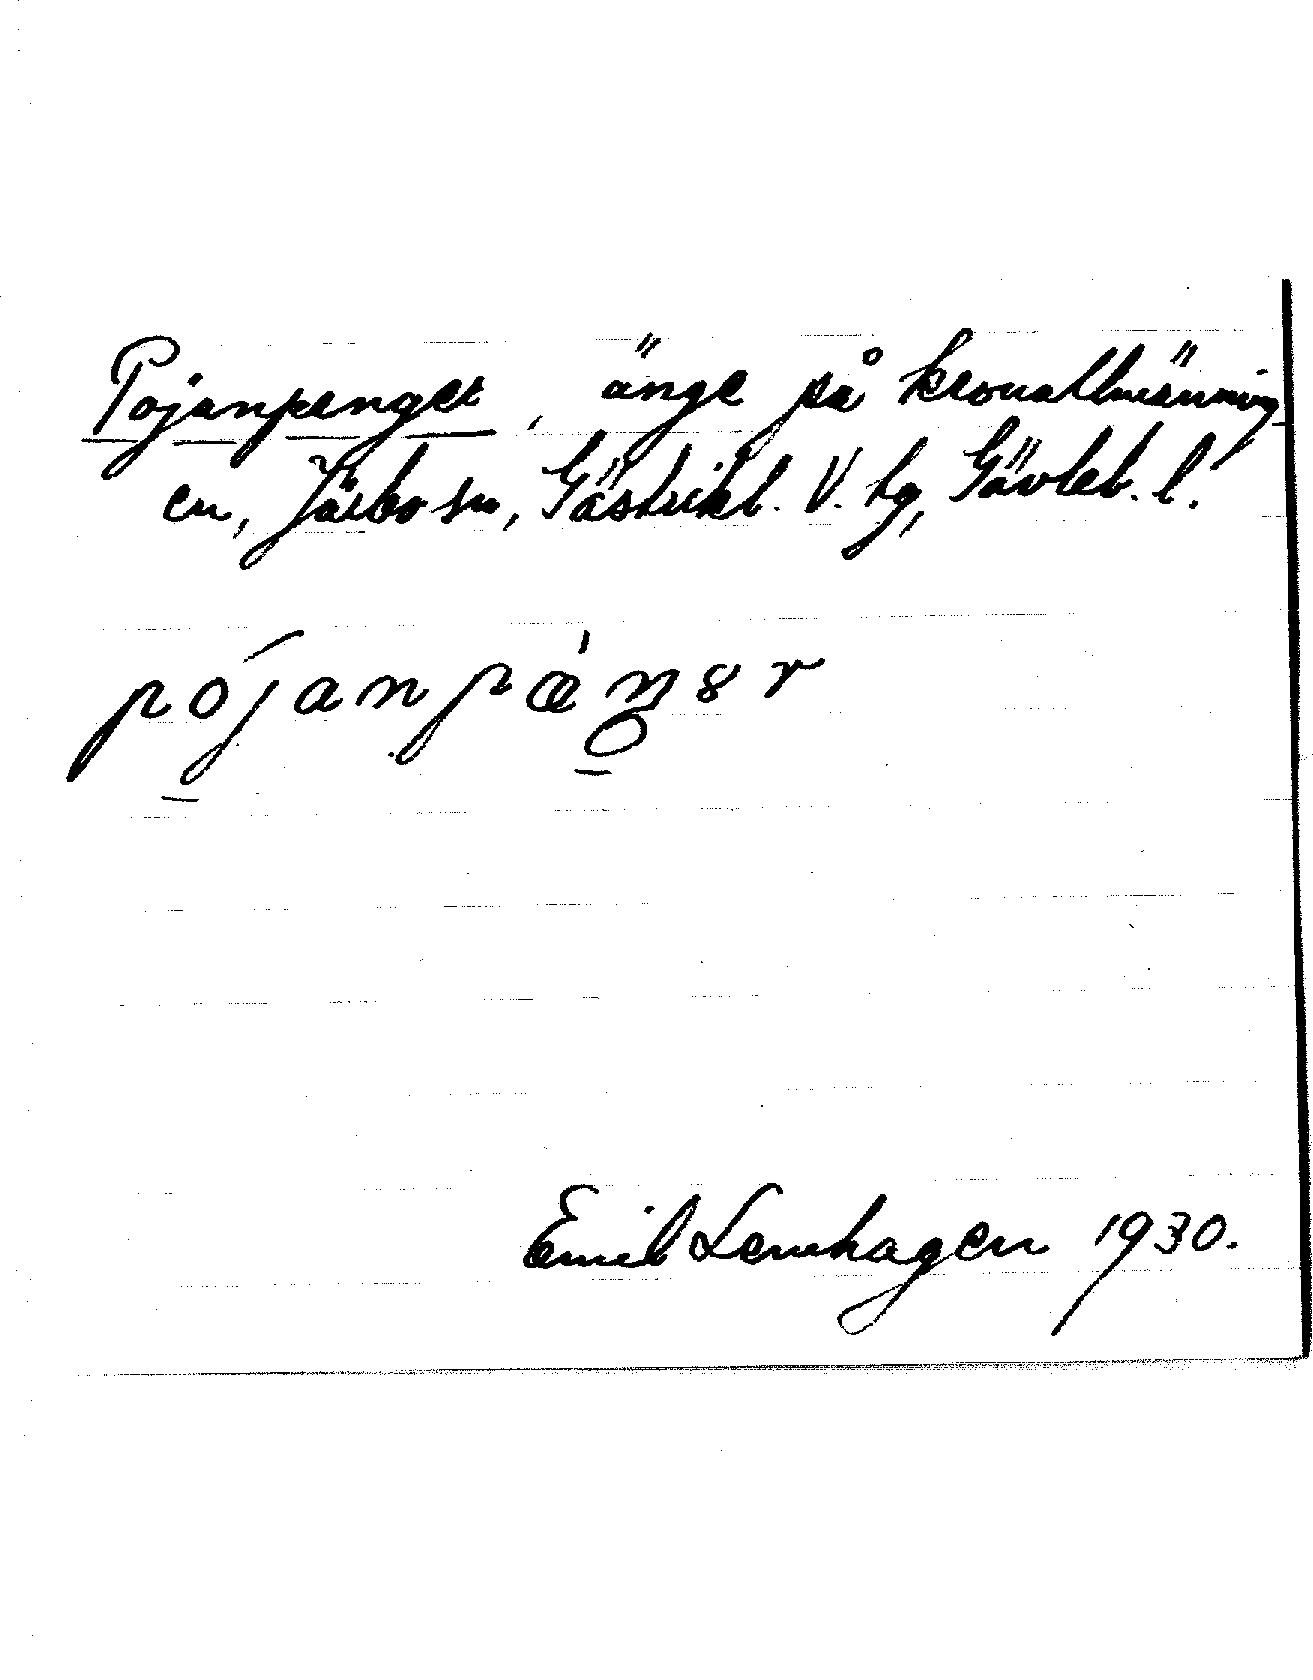 Pojanpenget, änge på kronallmänning
en, Järbo sn, Gästrikl. V. tg, Gävleb. l.
pójanpæ̀ŋ8r
Emil Lenhagen 1930.